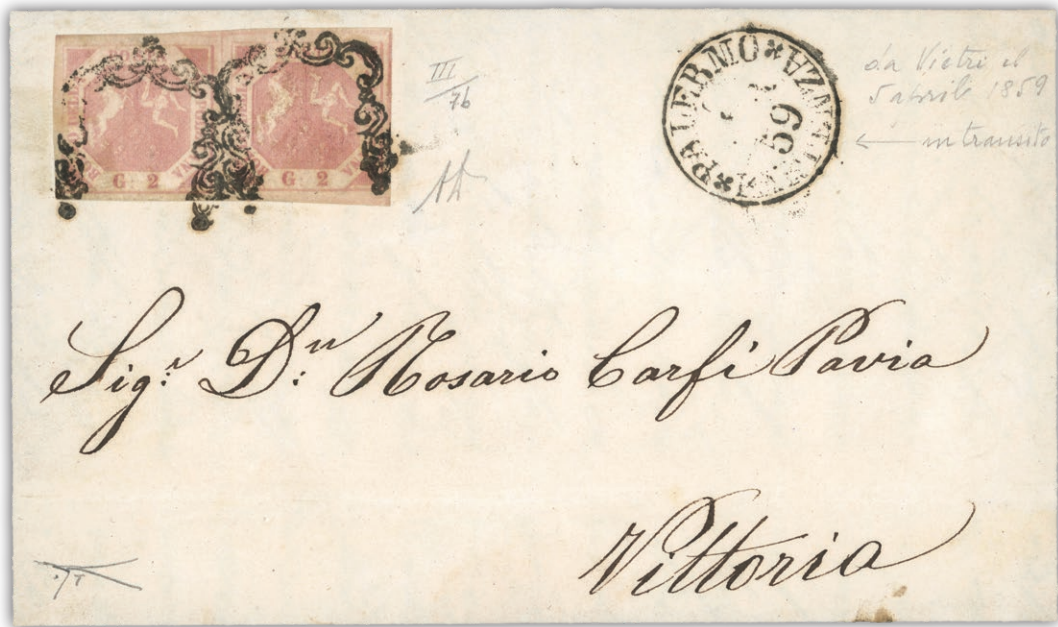 G 2
G 2
III
7b
PALERMO * PARTENZA *
59
da Vietri il
5 aprile 1859
← in transito
Sig.r D.n Rosario Carfì Pavia
Vittoria